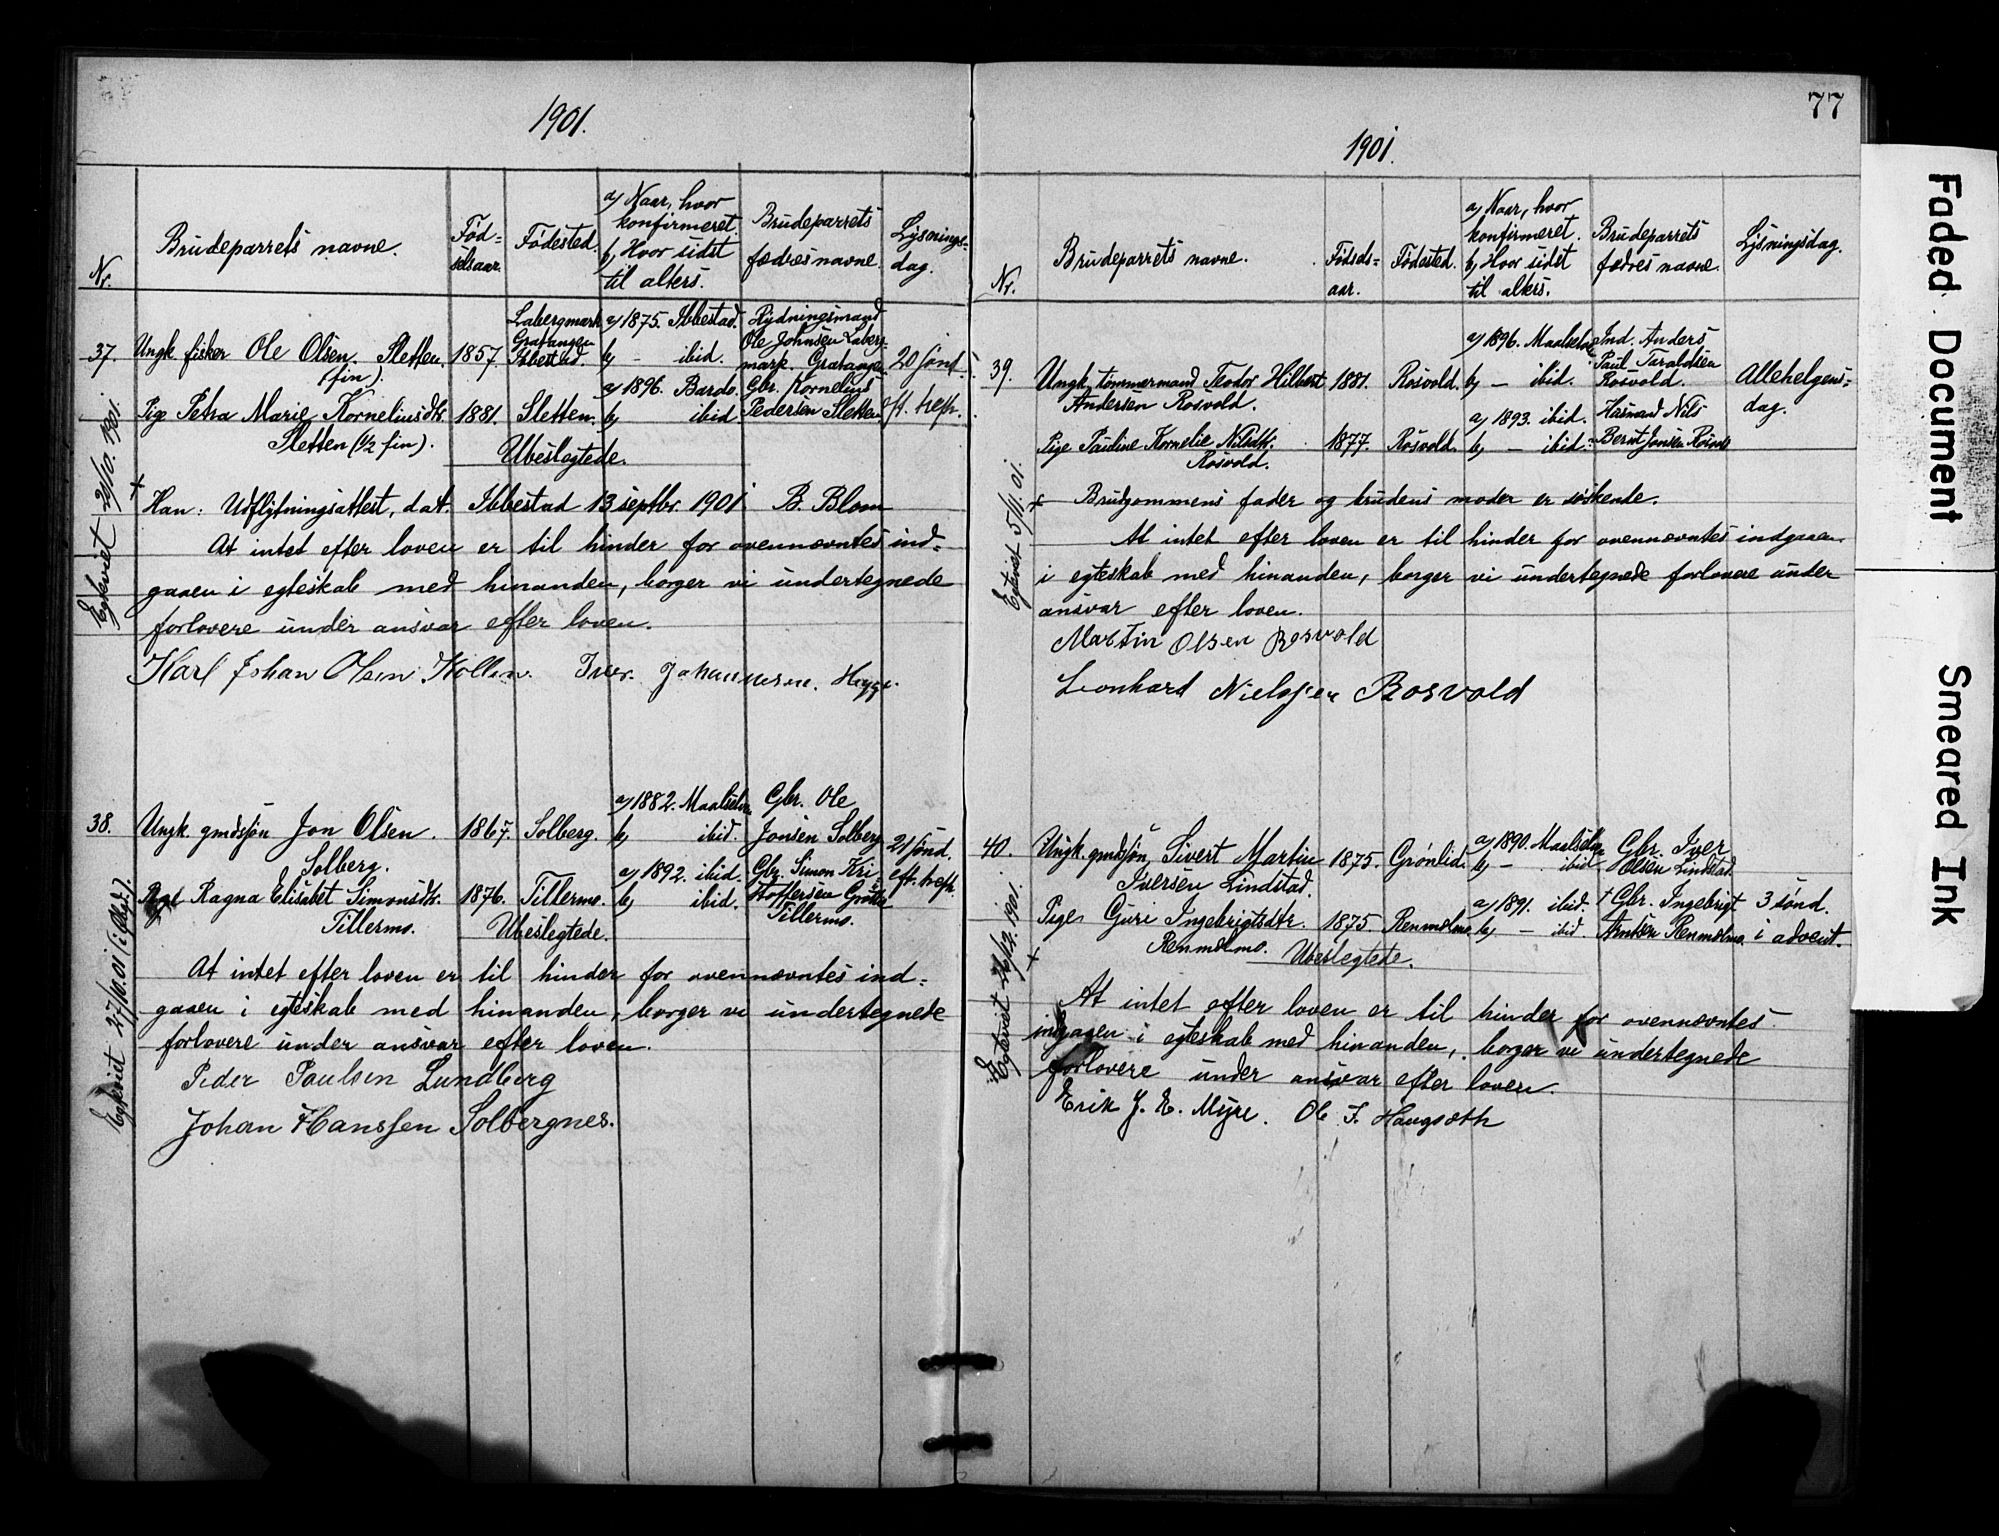 1901.
Nr.
Brudeparrets navne.
Fød=
selsaar.
Fødested.
a) Naar, hvor
konfirmeret.
b) Hvor sidst
til alters.
Brudeparrets
fædres navne.
Lysnings=
dag.
37. Ungk. fisker Ole Olsen Sletten
(fin).
1857.
Labergmark
Gratangen
Ibbestad.
a) 1875. Ibbestad.
b) - ibid.
Rydningsmand
Ole Johnsen Laberg
mark. Gratangen
20 sønd.
eft. trefh.
Pige Petra Marie Korneliusdtr.
Sletten (1/2 fin).
1881. Sletten.
a) 1896. Bardo.
b) ibid.
Gbr. Kornelius
Pedersen Sletten
Ubeslegtede.
Egteviet 20/10. 1901.
Han: Udflytningsattest, dat. Ibbestad 13 septbr. 1901 B. Blom
At intet efter loven er til hinder for ovennævntes ind=
gaaen i egteskab med hinanden, borger vi undertegnede
forlovere under ansvar efter loven.
Karl Johan Olsen Kollen. Iver Johannesen. Hegge.
38. Ungk. gmdssøn Jon Olsen
Solberg.
1867. Solberg.
a) 1882. Maalselv.
b) ibid.
Gbr. Ole
Jonsen Solberg
21 sønd.
eft. trefh.
Pige Ragna Elisabet Simonsdtr.
Tillermo.
1876. Tillermo.
a) 1892. ibid.
b) ibid.
Gbr. Simon Kri=
stoffersen
Tillermo.
Ubeslegtede.
Egteviet 27/10. 01
At intet efter loven er til hinder for ovennævntes ind=
gaaen i egteskab med hinanden, borger vi undertegnede
forlovere under ansvar efter loven.
Peder Paulsen Lundberg
Johan Hanssen Solbergnes.
77
1901.
Nr.
Brudeparrets navne.
Fødsels=
aar.
Fødested.
a) Naar, hvor
konfirmeret.
b) Hvor sidst
til alters.
Brudeparrets
fædres navne.
Lysningsdag.
39. Ungk. tømmermand Teodor Hilbert
Andersen Rosvold.
1881. Rosvold.
a) 1896. Maalselv
b) - ibid.
Ind. Anders
Paul Taraldsen
Rosvold.
Allehelgens=
dag.
Pige Pauline Kornelie Nilsdtr.
Rosvold.
1877. Rosvold.
a) 1893. ibid.
b) - ibid.
Husmand Nils
Bernt Jonsen Rosvold
Egteviet 5/11. 01.
Brudgommens fader og brudens moder er søskende.
At intet efter loven er til hinder for ovennævntes indgaaen
i egteskab med hinanden, borger vi undertegnede forlovere under
ansvar efter loven.
Martin Olsen Rosvold
Leonhard Nielsjen Rosvold
40. Ungk. gmdssøn, Sivert Martin
Iversen Lindstad.
1875. Grønlid.
a) 1890. Maalselv
b) - ibid
Gbr. Iver
Olsen Lindstad.
3 sønd.
i advent.
Pige Guri Ingebrigtsdtr.
Renmælmo.
1875 Renmælmo.
a) 1891. ibid.
b) - ibid.
† Gbr. Ingebrigt
Arntsen Renmælmo.
Ubeslegtede.
Egteviet 26/12. 1901.
At intet efter loven er til hinder for ovennævntes
ingaaen i egteskab med hinanden, borger vi undertegnede
forlovere under ansvar efter loven.
Erik J. E. Myre. Ole I. Haugsæth
Faded Document
Smeared Ink